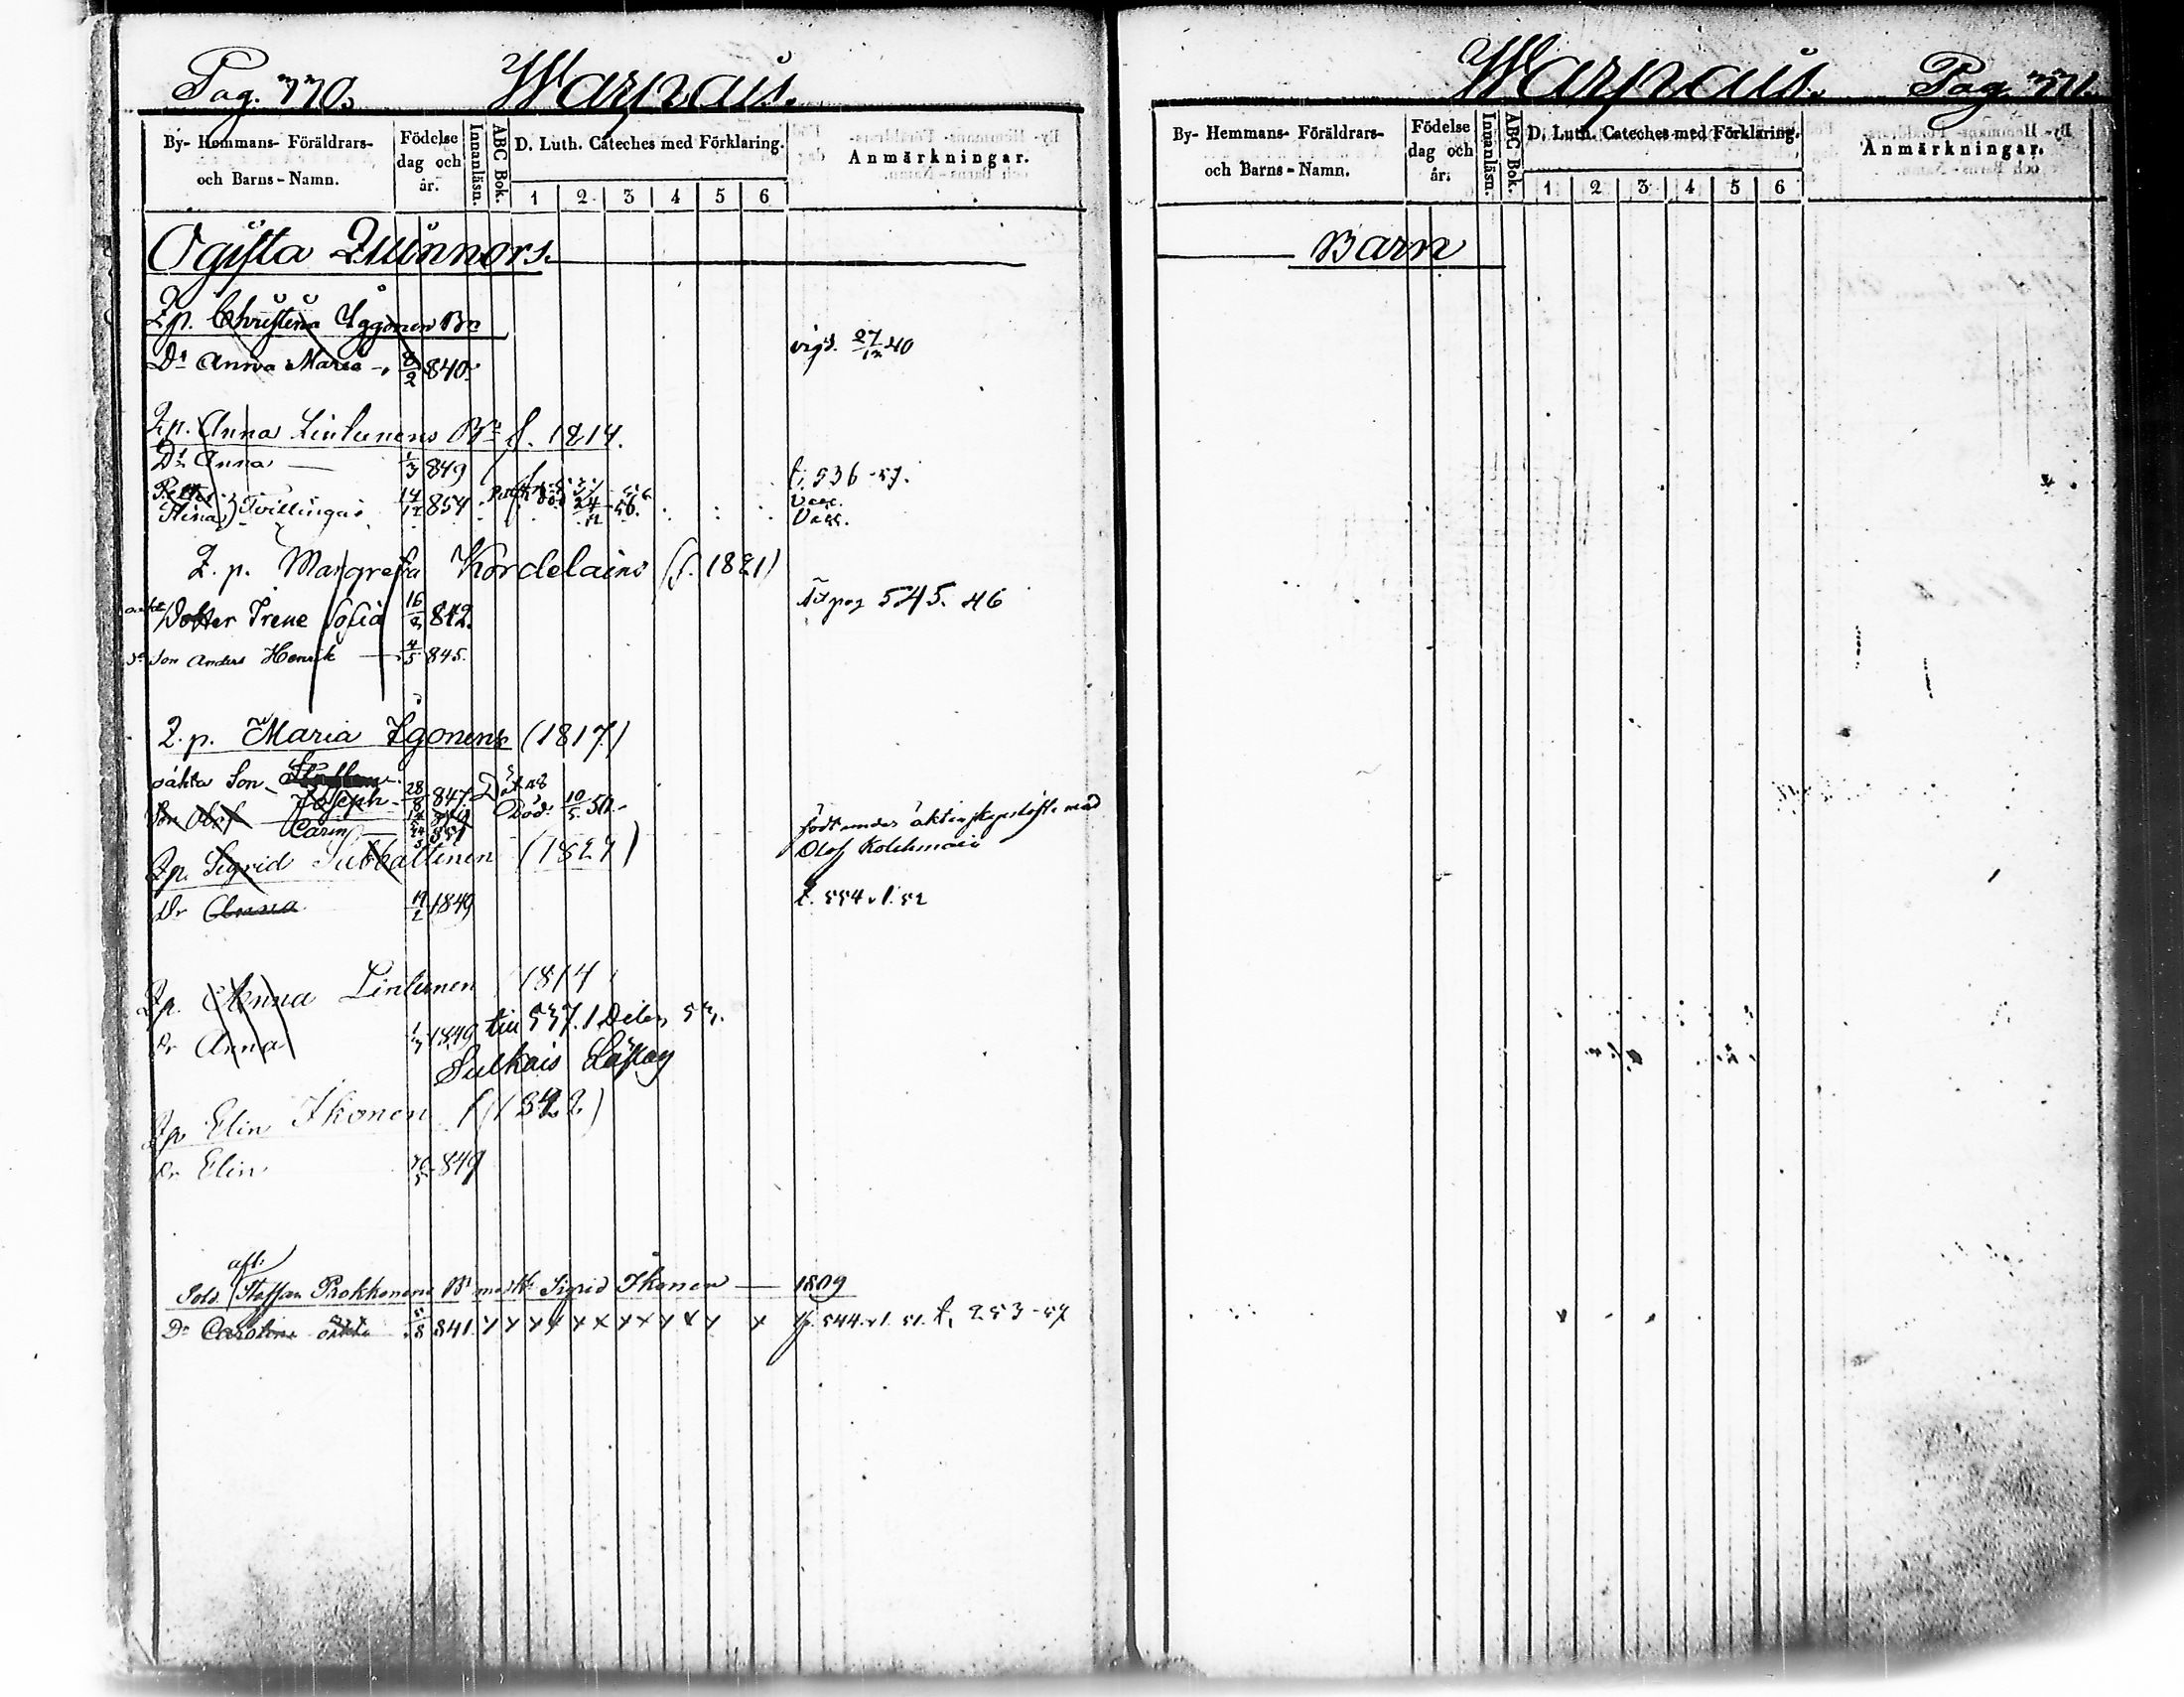 Pag. 770. Warpais.
By- Hemmans- Föräldrars- och Barns-Namn.
Födelse dag och år.
Innanläsn.
ABC Bok.
D. Luth. Cateches med Förklaring.
1 2 3 4 5 6
Anmärkningar.
Ogifta Quinnors.
Qp. Christina Bn
Dr Anna Maria 8/2 840. vigd. 27/12 40
Qp. Anna Linlunens Bn f. 1814.
Dr Anna 1/3 849 f. 536-57.
Petter Stina } Tvillingar 14/12 854 död 24/12 56. Vacc. Vacc.
Q. p. Margreta Kordelains (f. 1821)
oäkta Dotter Irene Sofia 16/2 842. pag 545. 46
Do Son Anders Henrik 4/5 845.
Q. p. Maria Igonens (1817)
oäkta Son
Joseph 28/8 847. Död 48
Son Olof 849 Död. 10/5. 50.
Carin 24/3 851 född under äktenskapslöfte med
Qp. Sigrid (1827) Olof Kolehmain
Dr Anna 1849 f. 554. v. l. 52
Qp. Anna Linlunen 1814
Dr Anna 1/3 1849 till 537. 1 Delen 53.
Qp Elin Ikonen
Dr Elin 849
afl:
Sold. Staffan Prokkonens Bn med Sigrid Ikonen — 1809
Dr Carolina oäkta 5/8 841. x x x x x x x x x x x x f. 544. v. l. 51. f. 253-57
Warpais. Pag. 771.
By- Hemmans- Föräldrars- och Barns-Namn.
Födelse dag och år.
Innanläsn.
ABC Bok.
D. Luth. Cateches med Förklaring.
1 2 3 4 5 6
Anmärkningar.
Barn